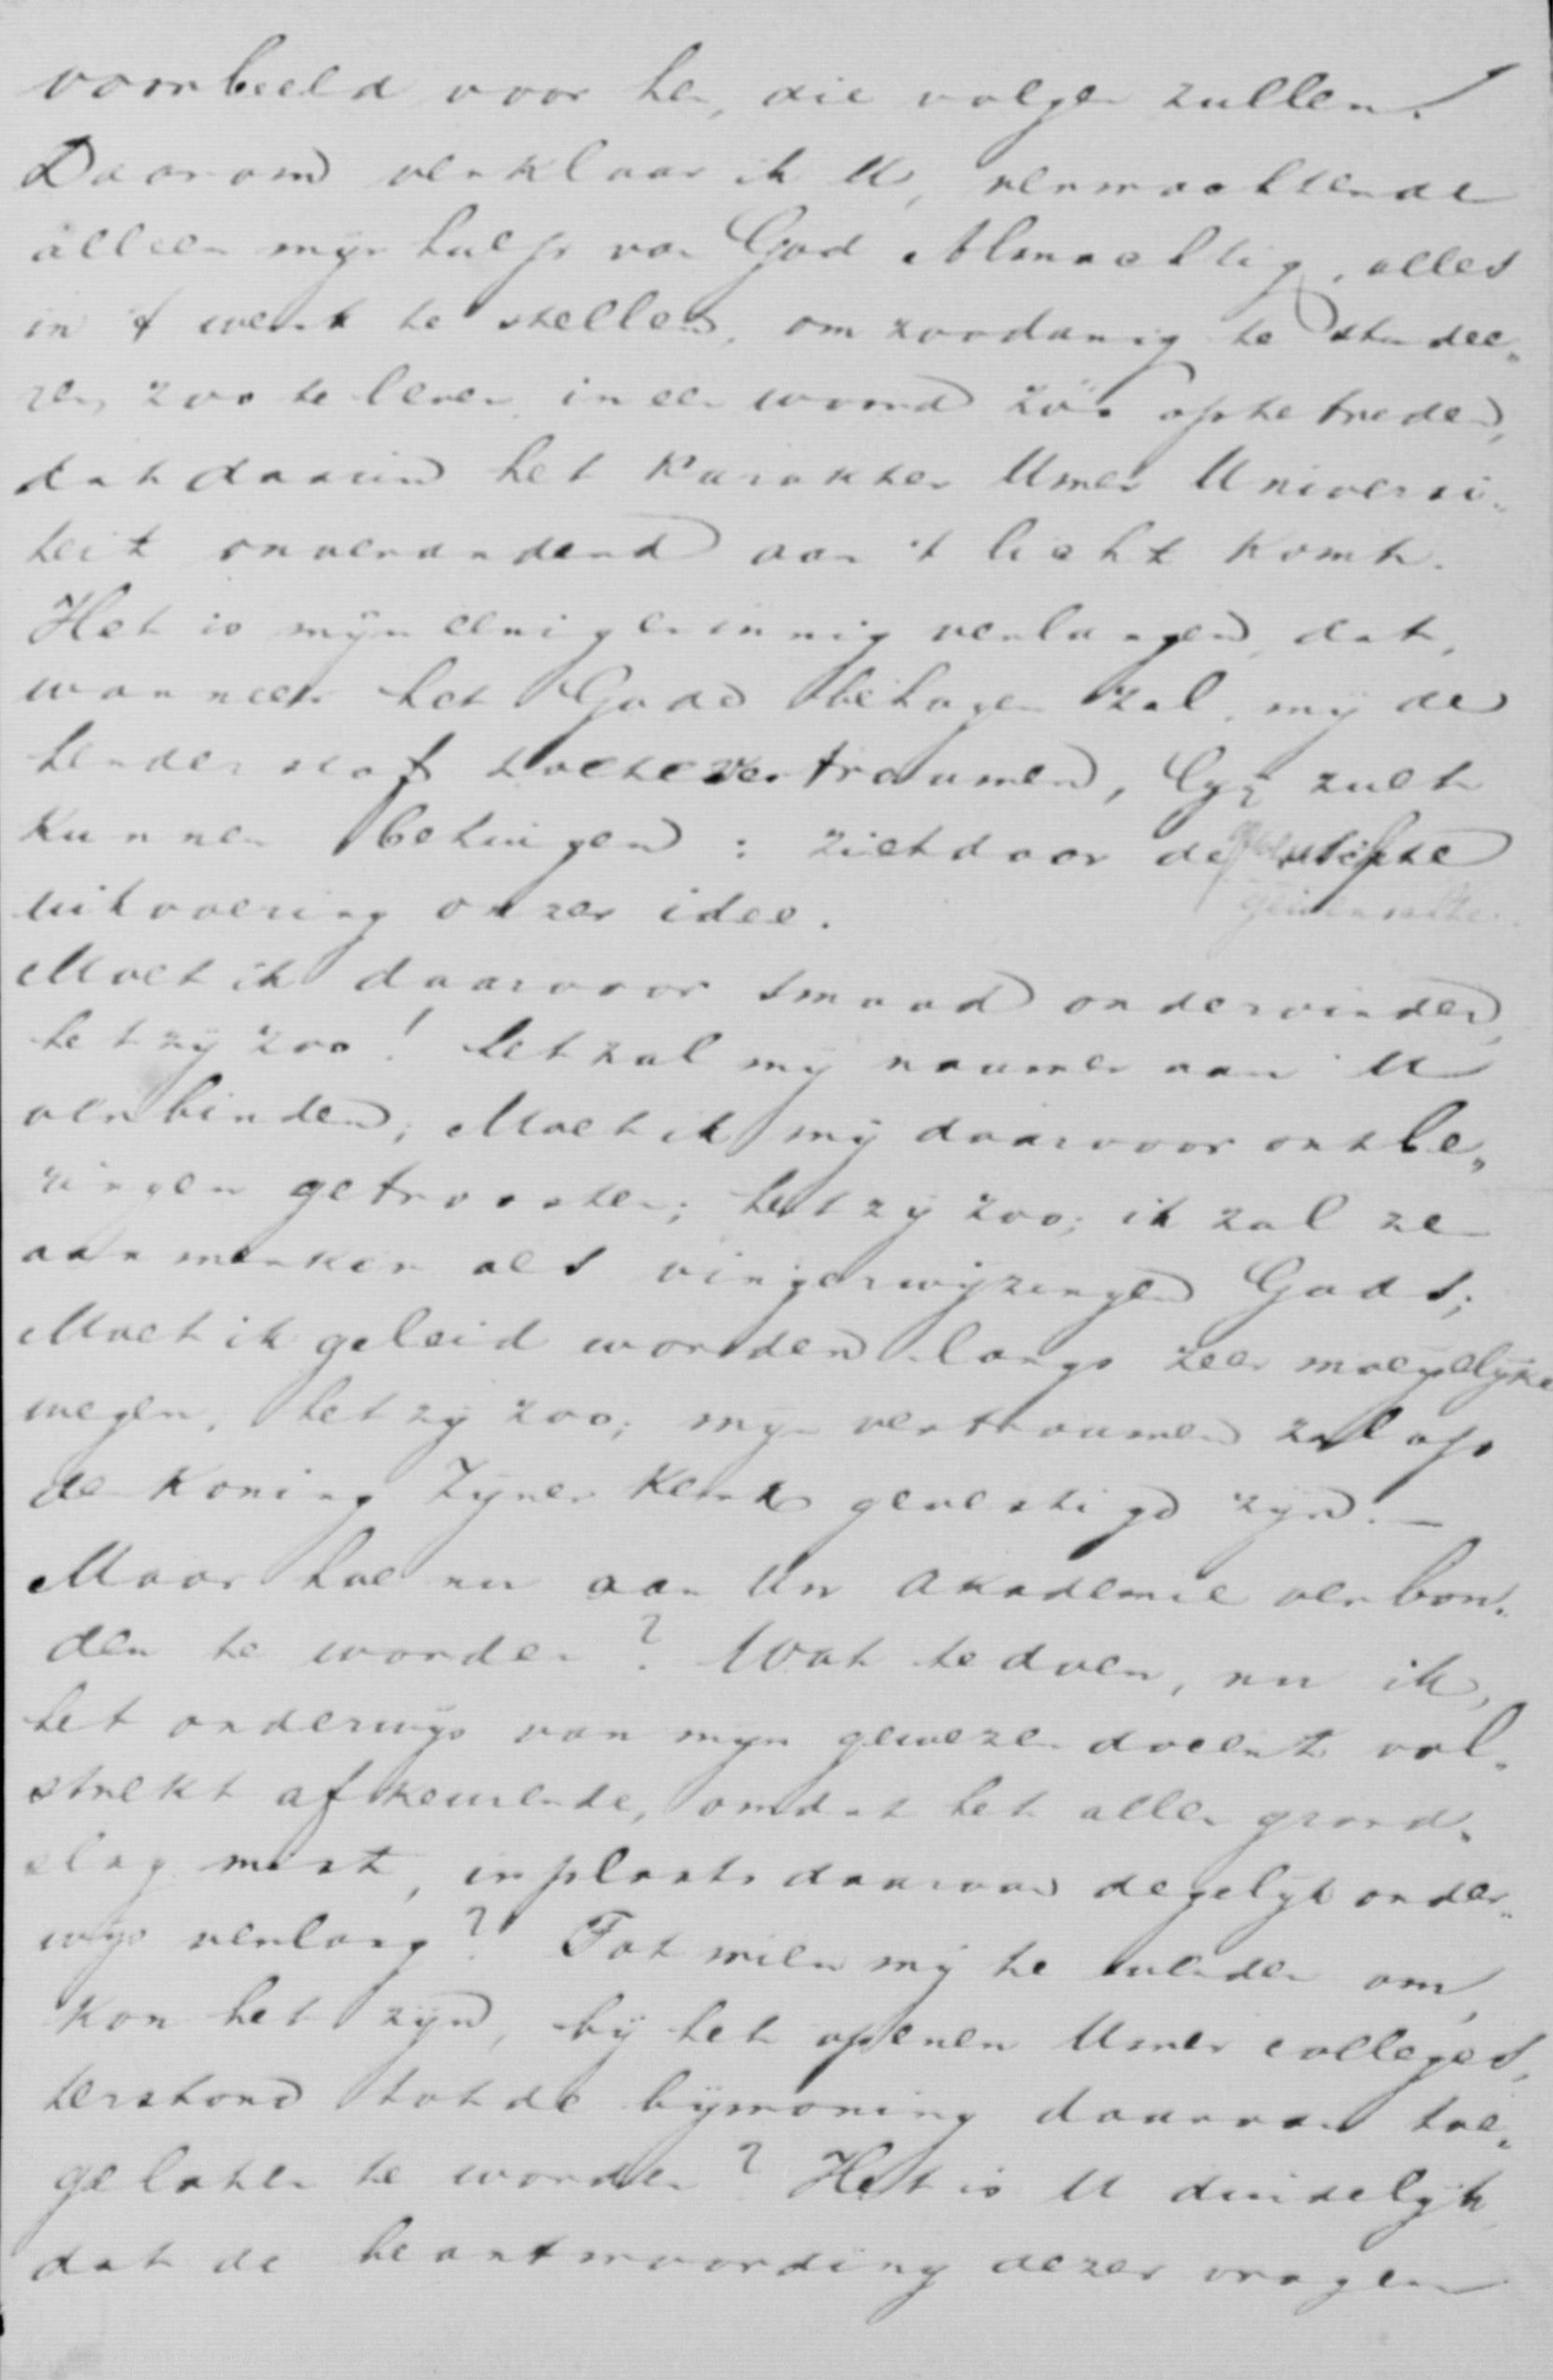 voorbeeld voor hen, die volgen zullen.
Daarom verklaar ik U, verwachtende
alleen mijn hulp van God Almachtig, alles
in 't werk te stellen, om zoodanig te studee„
ren, zoo te leven, in een woord zóó op te treden,
dat daarin het karakter Uwer Universi„
teit onveranderd aan 't licht komt.
Het is mijn eenig en innig verlangen, dat,
wanneer het Gode behagen zal, mij de
herdersstaf toe te vertrouwen, Gij zult
kunnen betuigen: ziet daar de
uitvoering onzer idee.
Moet ik daarvoor smaad ondervinden,
het zij zoo! het zal mij nauwer aan U
verbinden; Moet ik mij daarvoor ontbe„
ringen getroosten; het zij zoo; ik zal ze
aanmerken als vingerwijzingen Gods;
Moet ik geleid worden langs zeer moeyelijke
wegen, het zij zoo; mijn vertrouwen zal op
de Koning Zijner Kerk gevestigd zijn. —
Maar hoe nu aan Uw Akademie verbon„
den te worden? Wat te doen, nu ik,
het onderwijs van mijn gewezen docent vol„
strekt afkeurende, omdat het allen grond„
slag mist, in plaats daarvan degelijk onder„
wijs verlang? Tot wien mij te wenden om,
kon het zijn, bij het openen Uwer colleges,
terstond tot de bijwoning daarvan toe„
gelaten te worden? Het is U duidelijk,
dat de beantwoording dezer vragen